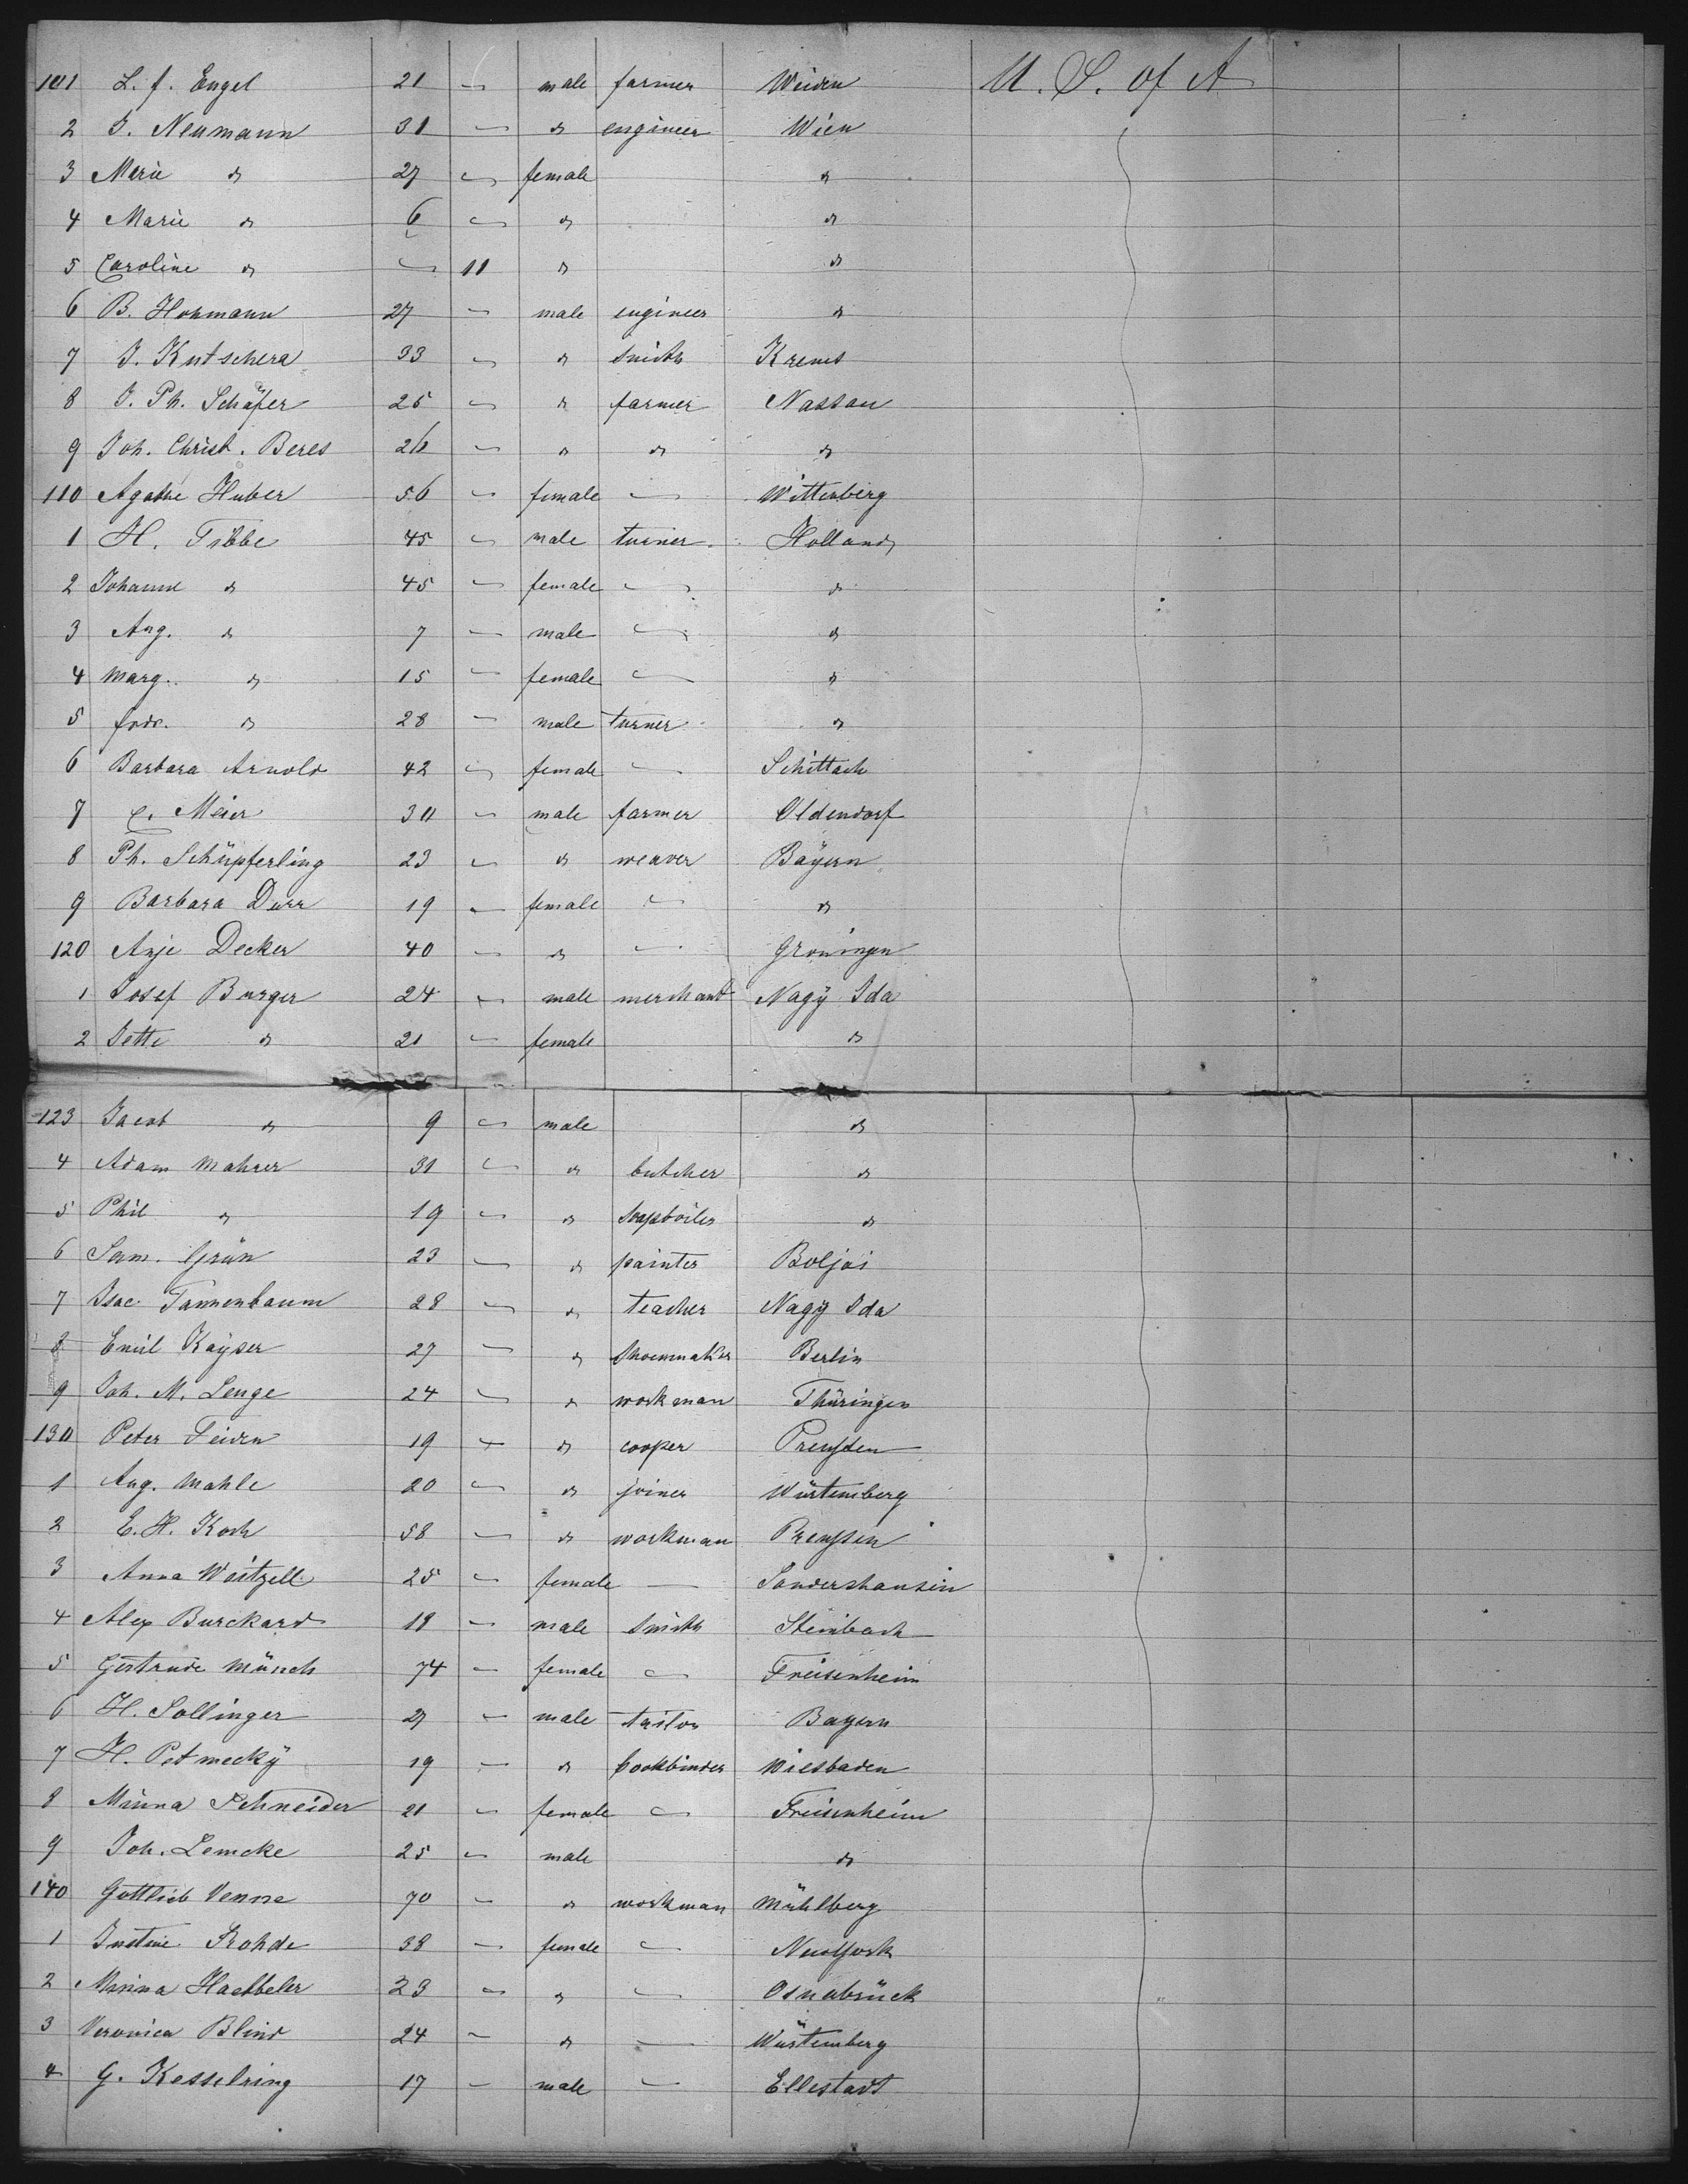 101 L. f. Engel 21 — male farmer Weiden U. S. of A
2 J. Neumann 31 — " engineer Wien
3 Marie " 27 — female "
4 Marie " 6 — " "
5 Caroline " — 11 " "
6 B. Hohmann 27 — male engineer "
7 J. Kutschera 33 — " smith Krems
8 J. Ph. Schäfer 25 — " farmer Nassau
9 Joh. Christ. Beres 26 — " " "
110 Agathe Huber 56 — female — Wittenberg
1 H. Tibbe 45 — male turner Holland
2 Johanne " 45 — female — "
3 Aug. " 7 — male — "
4 Marg. " 15 — female — "
5 fedr. " 28 — male turner "
6 Barbara Arnold 42 — female — Schittach
7 C. Meier 30 — male farmer Oldendorf
8 Ph. Schüpferling 23 — " weaver Bayern
9 Barbara Durr 19 — female — "
120 Anje Decker 40 — " — Groningen
1 Josef Burger 24 — male merchant Nagÿ Ida
2 Jette " 21 — female "
123 Jacob " 9 — male "
4 Adam Mahrer 31 — " butcher "
5 Phil " 19 — " soapboiler "
6 Sam. Grün 23 — " painter Boljai
7 Isac Tannenbaum 28 — " teacher Nagÿ Ida
8 Emil Kayser 27 — " shoemaker Berlin
9 Joh. M. Lenge 24 — " workman Thüringen
130 Peter Feiden 19 — " cooper Preussen
1 Aug. Mahle 20 — " joiner Würtemberg
2 E. H. Koch 58 — " workman Preussen
3 Anna Weitzell 25 — female — Sondershausen
4 Alex Burckard 18 — male smith Steinbach
5 Gertrude Münch 74 — female — Freisenheim
6 H. Sollinger 27 — male tailor Bayern
7 H. Petmeckÿ 19 — " bookbinder Wiesbaden
8 Minna Schneider 21 — female — Freisenheim
9 Joh. Lemcke 25 — male "
140 Gottlieb Venne 70 — " workman Mühlberg
1 Justine Rohde 38 — female — NewYork
2 Minna Haebbeler 23 — " — Osnabrück
3 Veronica Blind 24 — " — Würtemberg
4 G. Kesselring 17 — male — Ellestadt